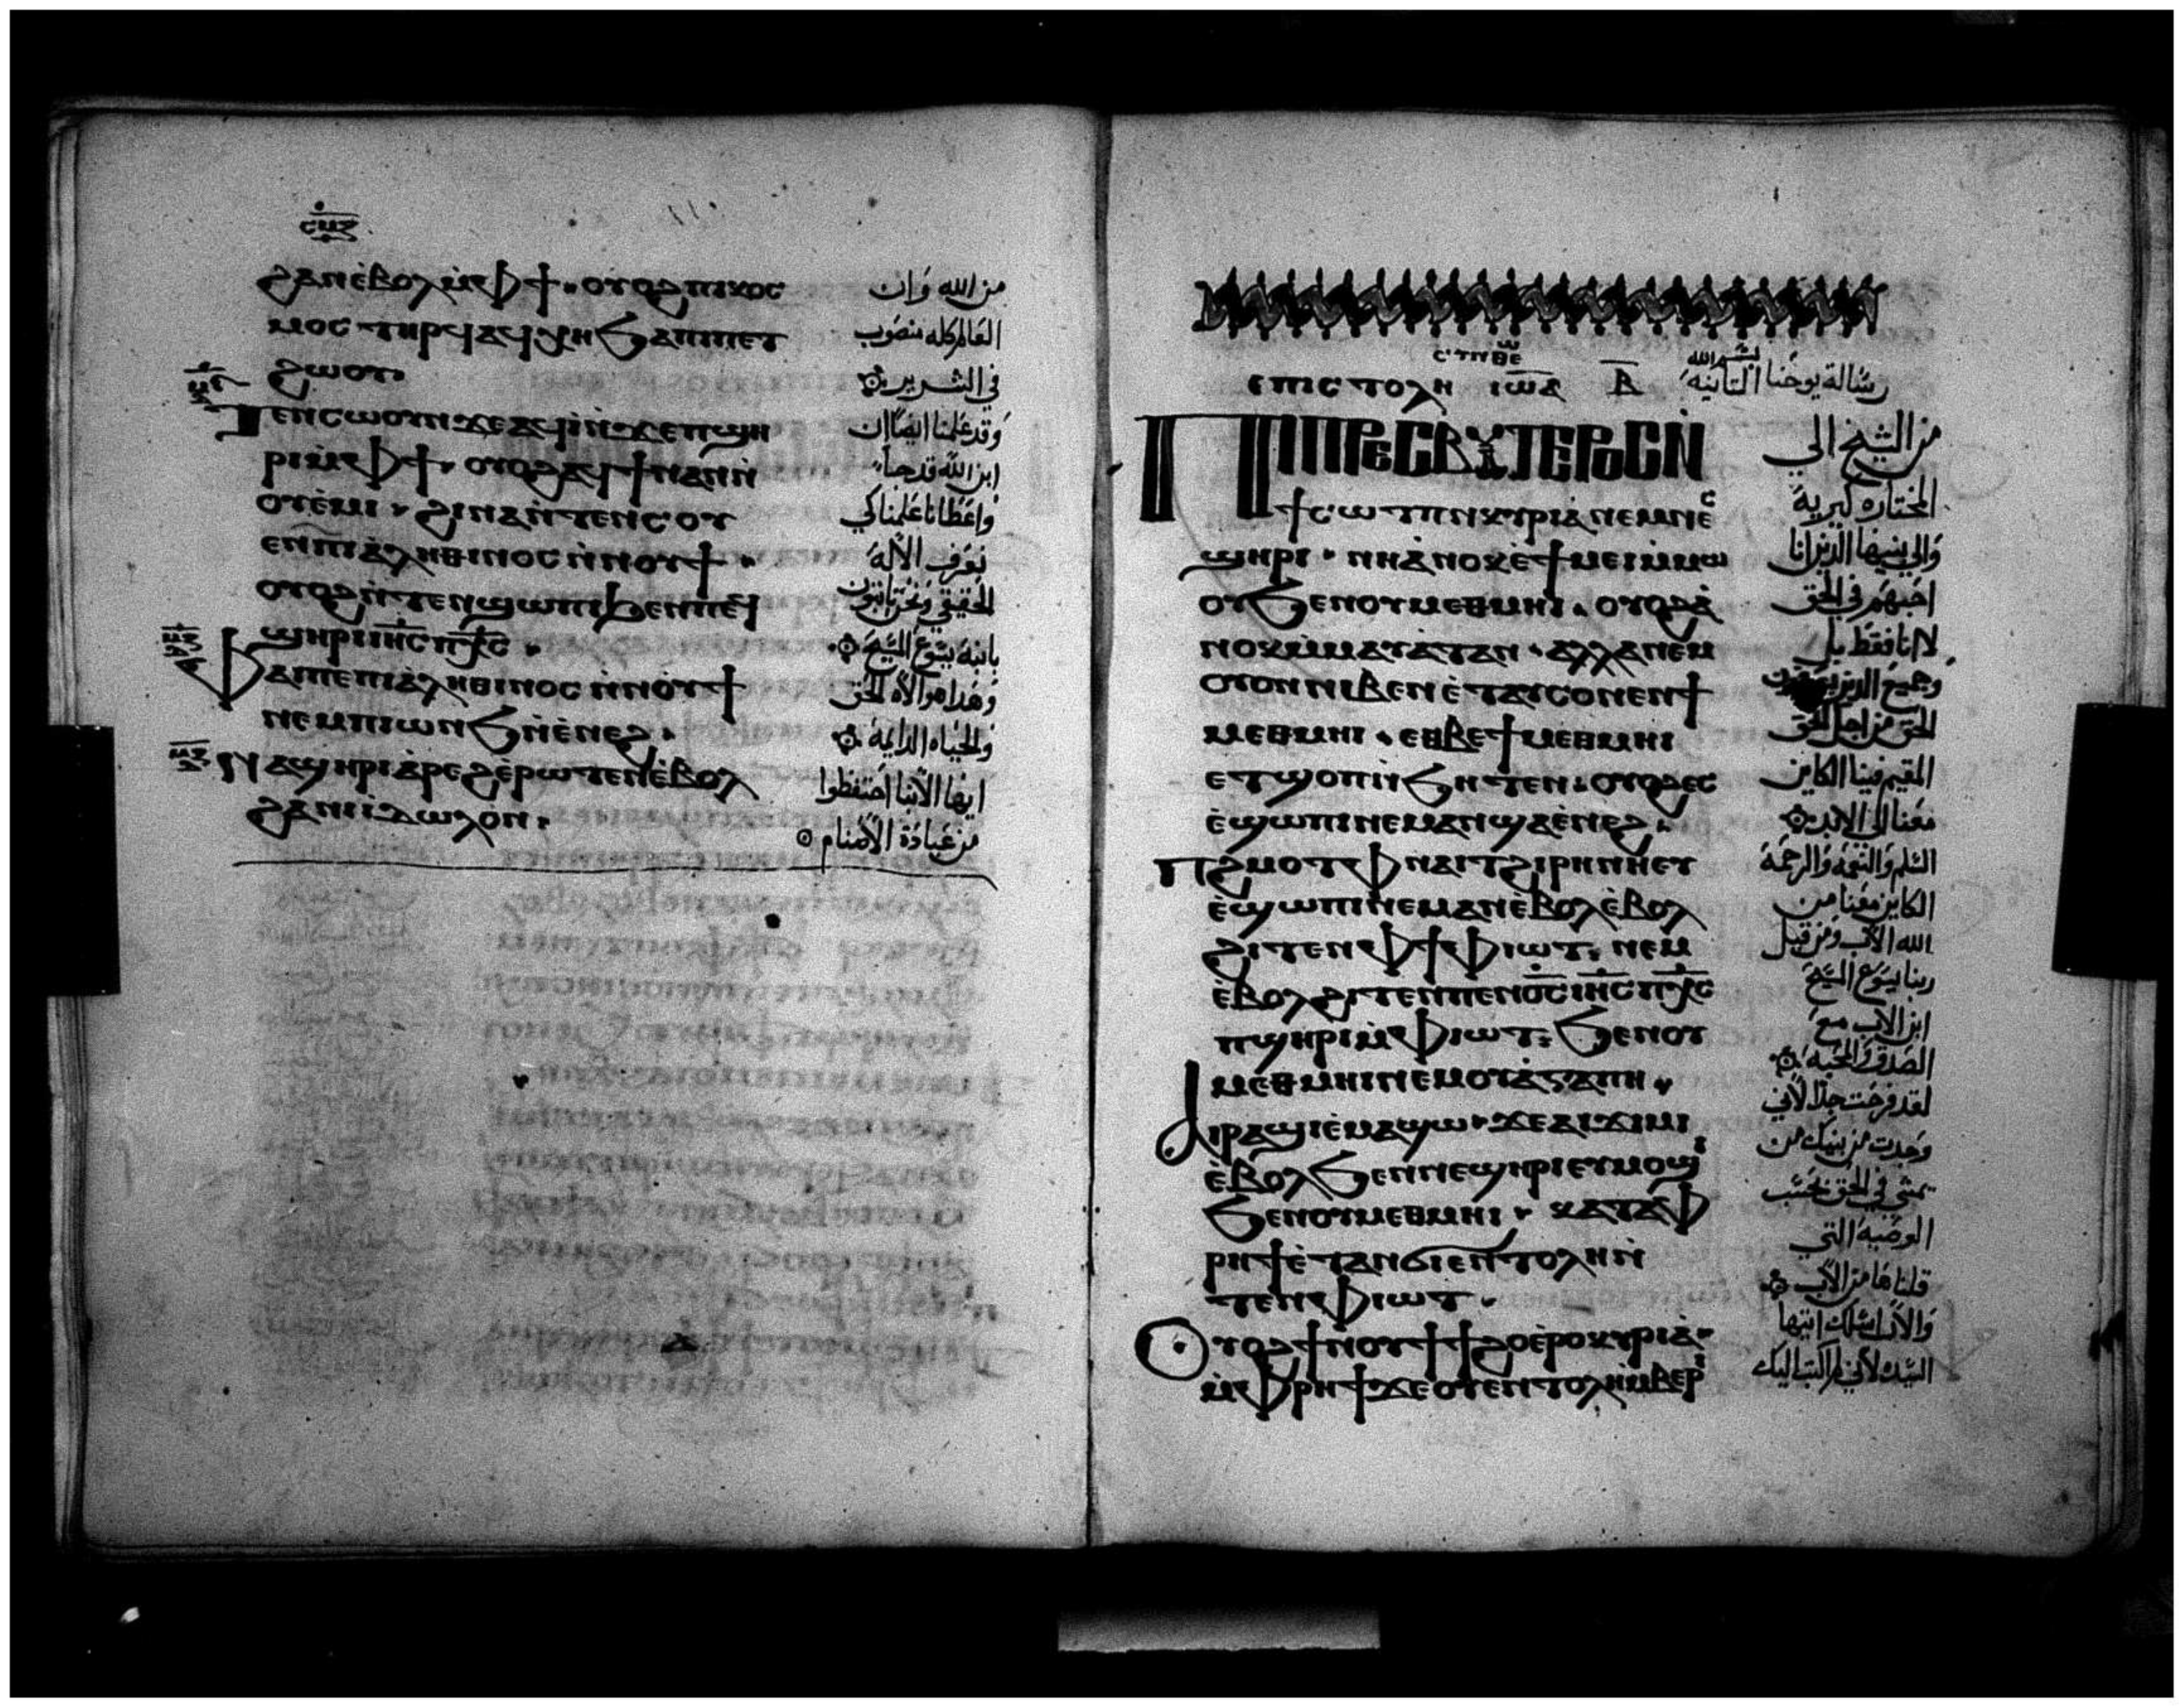 ⲥⲙⲍ
ϩⲁⲛⲉ̀ⲃⲟⲗⲙ̀ⲫϯ ⲟⲩⲟϩⲡⲓⲕⲟⲥ
ⲙⲟⲥ ⲧⲏⲣϥⲁϥⲭⲏϧⲁⲡⲓⲡⲉⲧ
ϩⲱⲟⲩ
ⲧⲉⲛⲥⲱⲟⲩⲛϫⲉⲁϥⲓ̀ⲛ̀ϫⲉⲡϣⲏ
ⲣⲓⲙ̀ⲫϯ ⲟⲩⲟϩⲁϥϯⲛⲁⲛⲛ̀
ⲟⲩⲉ̀ⲙⲓ ϩⲓⲛⲁⲛ̀ⲧⲉⲛⲥⲟⲩ
ⲉⲛⲡⲓⲁ̀ⲗⲏⲑⲓⲛⲟⲥ ⲛ̀ⲛⲟⲩϯ
ⲟⲩⲟϩⲛ̀ⲧⲉⲛϣⲱⲡⲓϧⲉⲛⲡⲉϥ
ϣⲏⲣⲓⲓⲏⲥⲡⲭⲥ
ⲫⲁⲓⲡⲉⲡⲓⲁ̀ⲗⲏⲑⲓⲛⲟⲥ ⲛ̀ⲛⲟⲩϯ
ⲛⲉⲙⲡⲓⲱⲛϧⲛ̀ⲉ̀ⲛⲉϩ
ⲛⲁϣⲏⲣⲓⲁ̀ⲣⲉϩⲉ̀ⲣⲱⲧⲉⲛⲉ̀ⲃⲟⲗ
ϩⲁⲛⲓⲓ̀ⲇⲱⲗⲟⲛ
من الله وان
العالم كله منصوب
في الشرير
وقد علمنا ايضا ان
ابن الله قد جا
واعطانا علما لكي
نعرف الاله
الحقيقي ونحن ثابتون
بابنه يسوع المسيح
وهذا هو الاه الحق
والحياه الدايمه
ايها الابنا احتفظوا
من عبادة الاصنام
ⲉⲡⲓⲥⲧⲟⲗⲏ ⲓⲱⲁ ⲃ رسالة يوحنا الثانيه
ⲡⲓⲡⲣⲉⲥⲃⲩⲧⲉⲣⲟⲥⲛ̀
ϯⲥⲱⲧⲡⲛⲕⲩⲣⲓⲁ̀ⲛⲉⲙⲛⲉⲥ
ϣⲏⲣⲓ ⲛⲏⲁ̀ⲛⲟⲕⲉ̀ϯⲙⲉⲓⲙ̀ⲙⲱ
ⲟⲩϧⲉⲛⲟⲩⲙⲉⲑⲙⲏⲓ ⲟⲩⲟϩⲁ̀
ⲛⲟⲕⲙ̀ⲙⲁⲩⲁⲧⲁⲛ ⲁⲗⲗⲁⲛⲉⲙ
ⲟⲩⲟⲛⲛⲓⲃⲉⲛⲉ̀ⲧⲁⲩⲥⲟⲩⲉⲛϯ
ⲙⲉⲑⲙⲏⲓ ⲉⲑⲃⲉϯⲙⲉⲑⲙⲏⲓ
ⲉⲧϣⲟⲡⲛ̀ϧⲏⲧⲉⲛ ⲟⲩⲟϩⲉⲥ
ⲉ̀ϣⲱⲡⲓⲛⲉⲙⲁⲛϣⲁⲉ̀ⲛⲉϩ
ⲡϩⲙⲟⲧⲫⲛⲁⲓⲧϩⲓⲣⲏⲛⲏⲉⲩ
ⲉ̀ϣⲱⲡⲓⲛⲉⲙⲁⲛⲉ̀ⲃⲟⲗⲉ̀ⲃⲟⲗ
ϩⲓⲧⲉⲛⲫϯⲫⲓⲱⲧ ⲛⲉⲙ
ⲉ̀ⲃⲟⲗϩⲓⲧⲉⲛⲡⲉⲛⲟⲥⲓⲏⲥⲡⲭⲥ
ⲡϣⲏⲣⲓⲙ̀ⲫⲓⲱⲧ ϧⲉⲛⲟⲩ
ⲙⲉⲑⲙⲏⲓⲛⲉⲙⲟⲩⲁ̀ⲅⲁⲡⲏ
ⲁⲓⲣⲁϣⲓⲉ̀ⲙⲁϣⲱ ϫⲉⲁⲓϫⲓⲙⲓ
ⲉ̀ⲃⲟⲗϧⲉⲛⲛⲉϣⲏⲣⲓⲉⲩⲙⲟϣⲓ
ϧⲉⲛⲟⲩⲙⲉⲑⲙⲏⲓ ⲕⲁⲧⲁⲫ
ⲣⲏϯⲉ̀ⲧⲁⲛϭⲓⲉⲛⲧⲟⲗⲏⲛ̀
ⲧⲉⲛⲫⲓⲱⲧ
ⲟⲩⲟϩϯⲛⲟⲩϯϯϩⲟⲉ̀ⲣⲟⲕⲩⲣⲓⲁ̀
ⲙ̀ⲫⲣⲏϯϫⲉⲟⲩⲉⲛⲧⲟⲗⲏⲙ̀ⲃⲉⲣⲓ
من الشيخ الي
المختاره كيريه
والي بنيها الذين انا
احبهم في الحق
لا انا فقط بل
وجميع الذين
الحق من اجل الحق
المقيم فينا الكاين
معنا الي الابد
السلم والنعمه والرحمة
الكاين معنا من
الله الاب ومن قبل
ربنا يسوع المسيح
ابن الاب مع
الصدق والمحبه
لقد فرحت جدا لاني
وجدت من بنيك من
يمشي في الحق بحسب
الوصيه التي
قلناها من الاب
والان اسلك ايتها
السيده لاني لم اكتب اليك